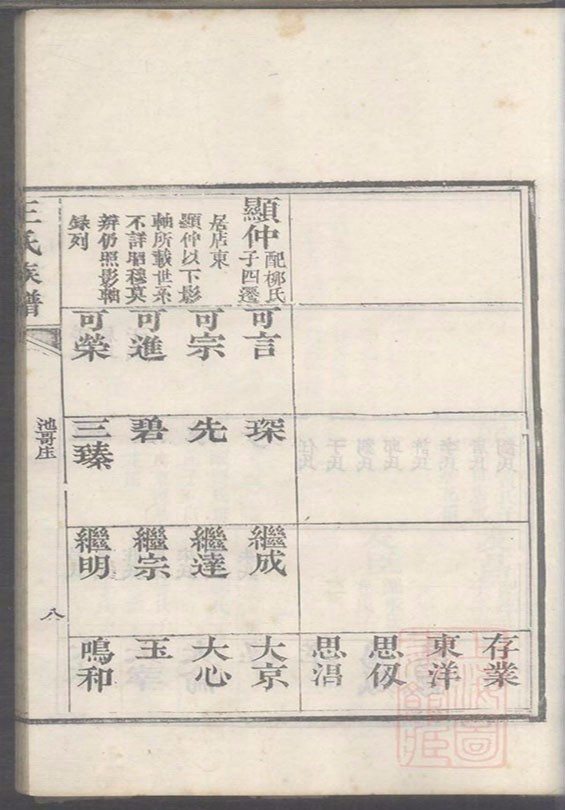 顯仲
配柳氏
子四遷
居店東
顯仲以下影
軸所載世系
不詳昭穆莫
辨仍照影軸
録列
可言
可宗
可進
可榮
琛
先
碧
三臻
繼成
繼達
繼宗
繼明
存業
東洋
思伋
思淐
大京
大心
玉
鳴和
王氏族譜
池哥庄
八